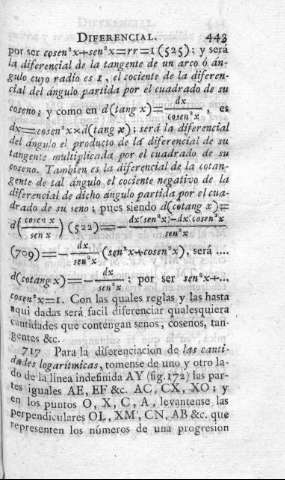 DIFERENCIAL. 443
por ser cosen²x+sen²x=rr=1 (525); y será
la diferencial de la tangente de un arco ó án-
gulo cuyo radio es 1, el cociente de la diferen-
cial del ángulo partida por el cuadrado de su
coseno; y como en d(tang x)=dx/cosen²x, es
dx=cosen²x×d(tang x); será la diferencial
del ángulo el producto de la diferencial de su
tangente multiplicada por el cuadrado de su
coseno. Tambien es la diferencial de la cotan-
gente de tal ángulo el cociente negativo de la
diferencial de dicho ángulo partida por el cua-
drado de su seno; pues siendo d(cotang x)=
d(cosen x/sen x) (522)=−dx(sen²x)−dx.cosen²x/sen²x
(709)=−dx/sen²x (sen²x+cosen²x), será ....
d(cotang x)=−dx/sen²x; por ser sen²x+...
cosen²x=1. Con las quales reglas y las hasta
aquí dadas será facil diferenciar qualesquiera
cantidades que contengan senos, cosenos, tan-
gentes &c.
717 Para la diferenciacion de las canti-
dades logarítmicas, tomense de uno y otro la-
do de la linea indefinida AY (fig.172) las par-
tes iguales AE, EF &c. AC, CX, XO; y
en los puntos O, X, C, A, levantense las
perpendiculares OL, XM, CN, AB &c. que
representen los números de una progresion